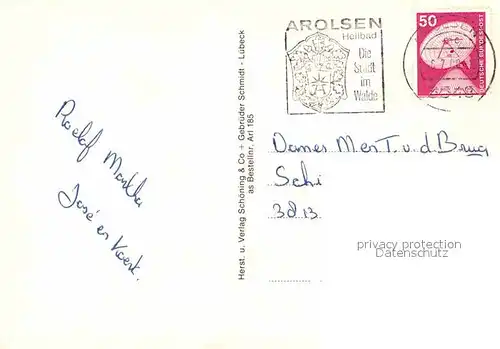 AROLSEN
Heilbad
Die
Stadt
im
Walde
50
DEUTSCHE BUNDESPOST
Roelof Martha
José en Koert.
Herst. u. Verlag Schöning & Co + Gebrüder Schmidt - Lübeck
as Bestellnr. Arl 185
Dames M en T. v. d Brug
Schi
3d 13
privacy protection
Datenschutz